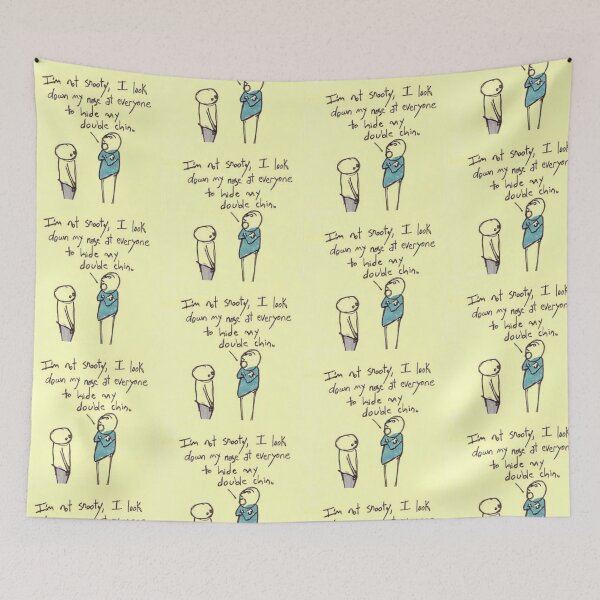 I'm not snooty, I look
down my nose at everyone
to hide my
double chin.
I'm not snooty, I look
down my nose at everyone
to hide my
double chin.
I'm not snooty, I look
down my nose at everyone
to hide my
double chin.
I'm not snooty, I look
I'm not snooty, I look
down my nose at everyone
to hide my
double chin.
I'm not snooty, I look
down my nose at everyone
to hide my
double chin.
I'm not snooty, I look
down my nose at everyone
to hide my
double chin.
I'm not snooty, I look
down my nose at everyone
to hide my
double chin.
I'm not snooty, I look
down my nose at everyone
to hide my
double chin.
I'm not snooty, I look
down my nose at everyone
to hide my
double chin.
I'm not snooty, I look
I'm not snooty, I look
down my nose at
to hide my
double chin.
I'm not snooty, I look
down my nose at
to hide my
double chin.
I'm not snooty, I look
down my nose at
to hide my
double chin.